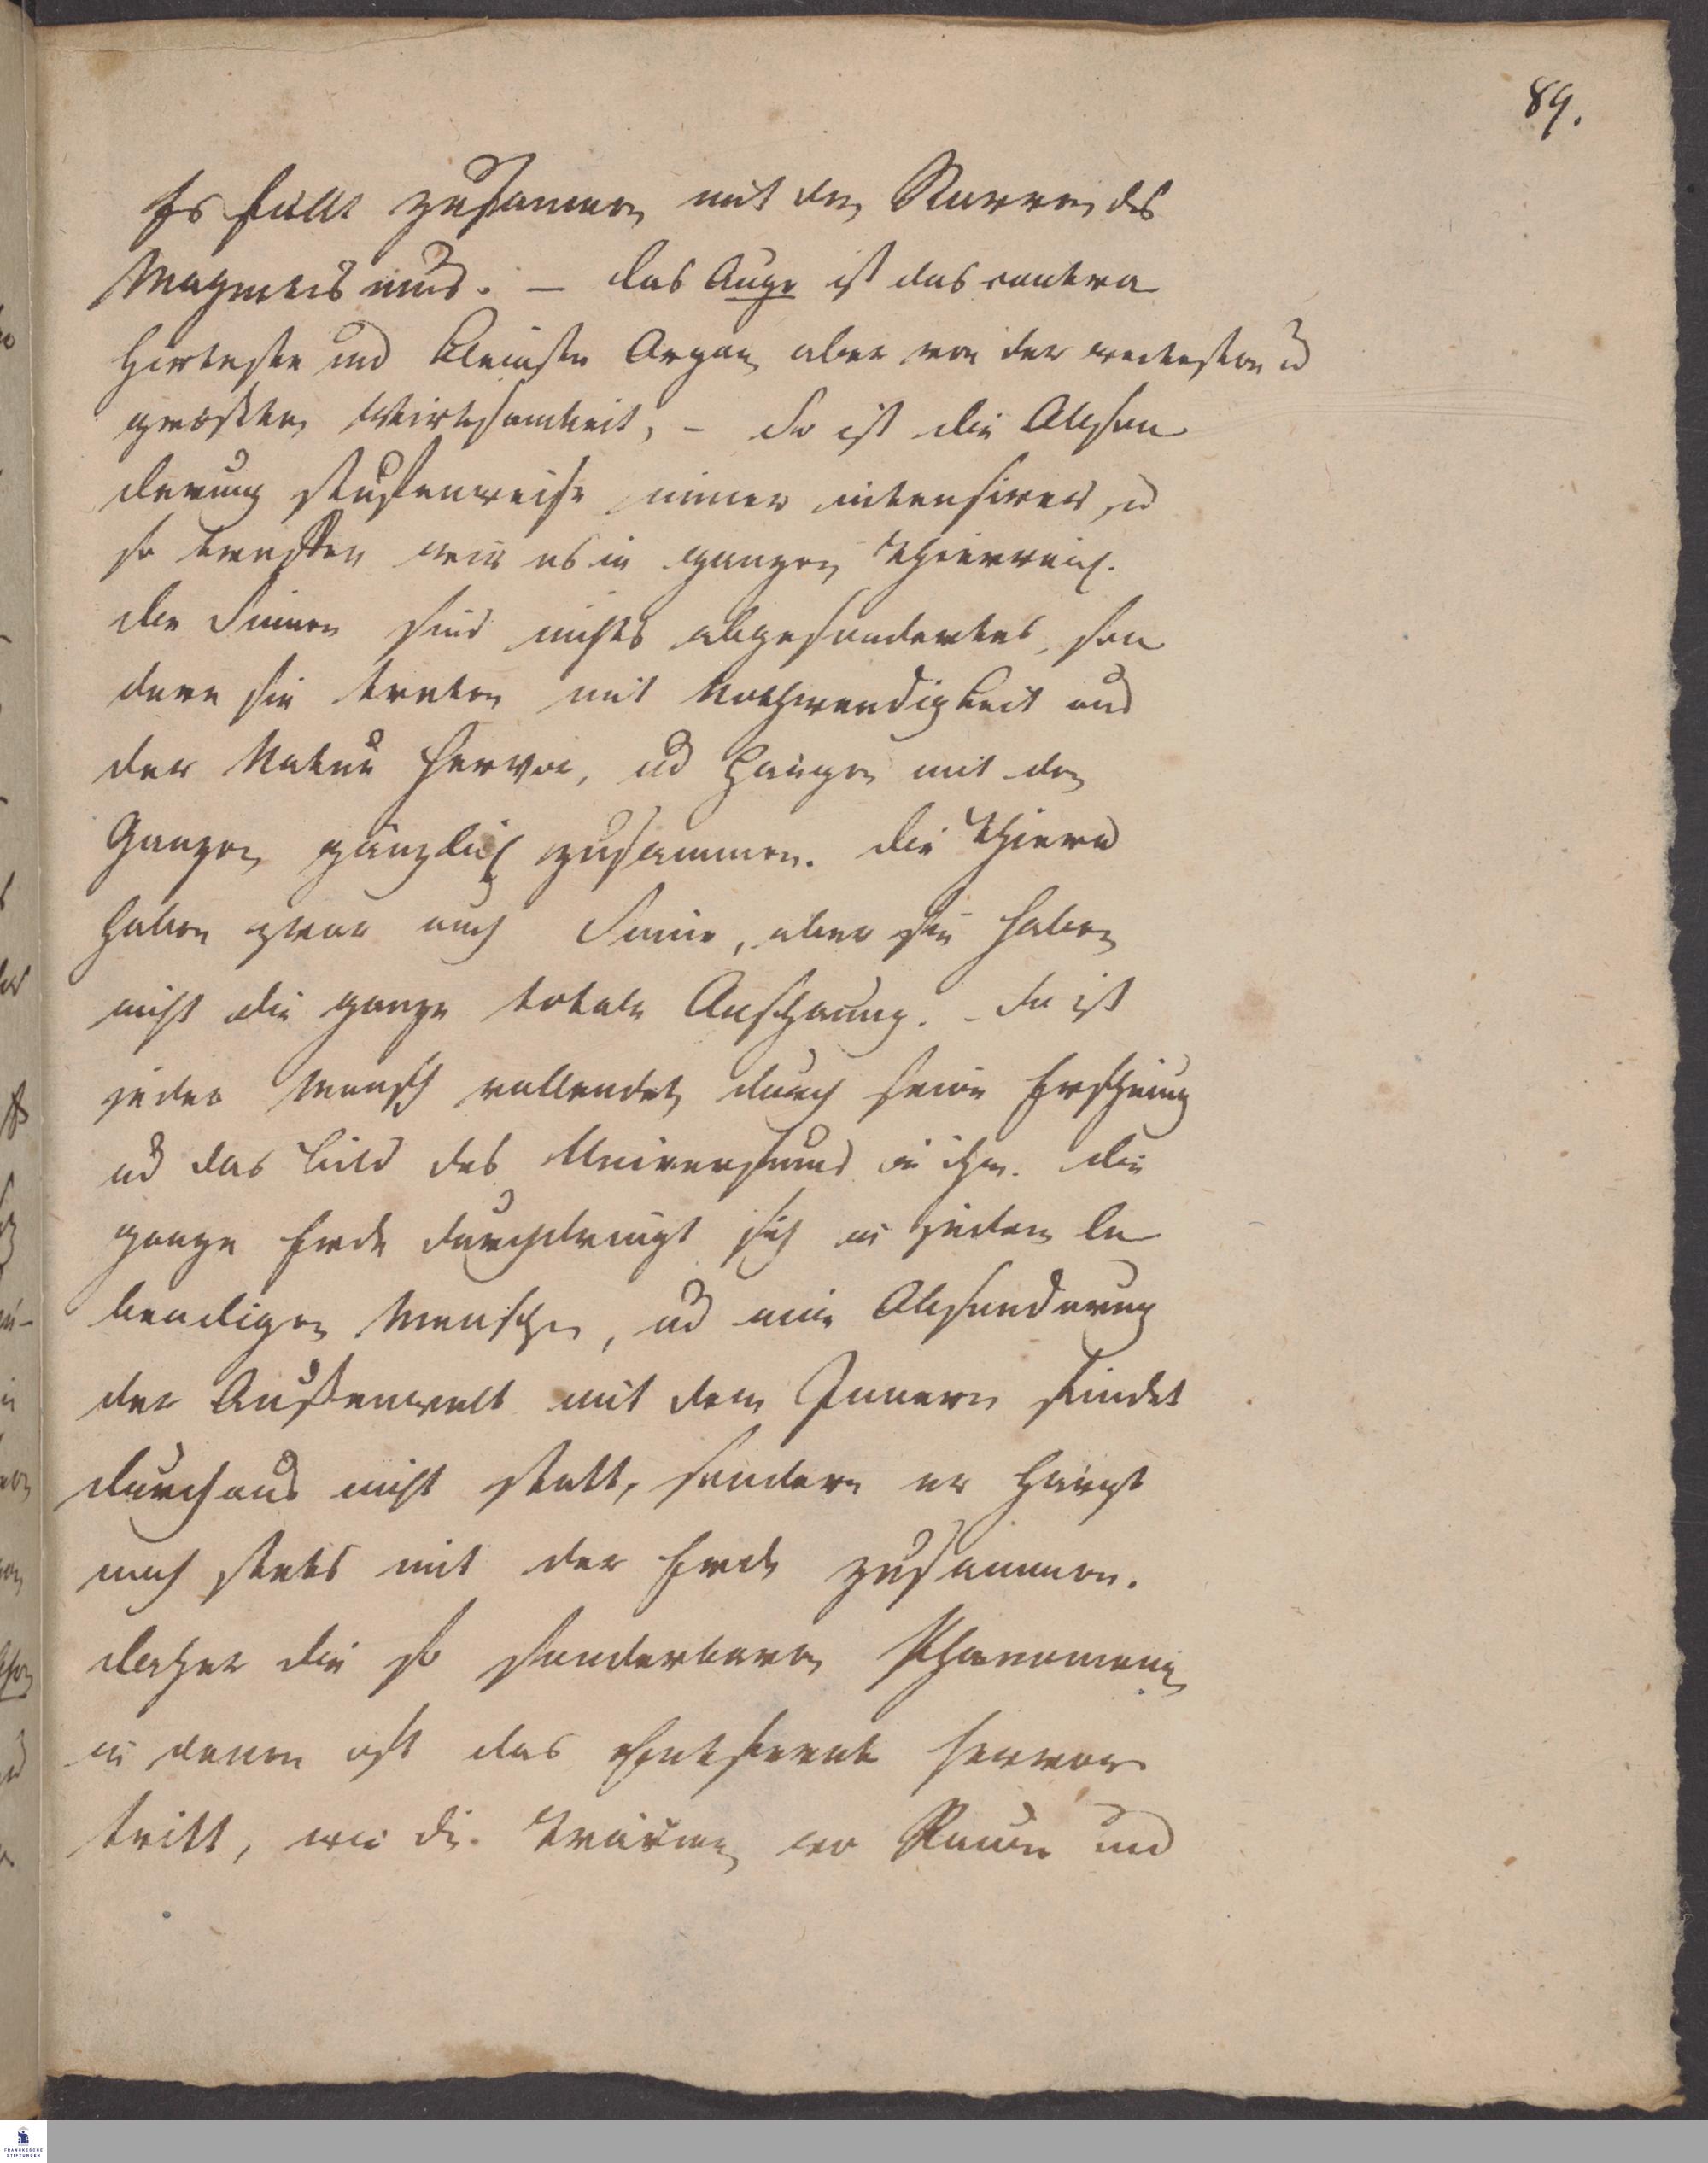 89.
Es fällt zusammen mit dem Starren des
Magnetismus. – Das Auge ist das contra
hirteste und kleinste Organ aber von der weitesten u
größten Wirksamkeit, – So ist die Abson
derung stufenweise immer intensiver, u
so treffen wir es im ganzen Thierreich.
Die Sinne sind nichts abgesondertes, son
dern sie treten mit Nothwendigkeit aus
der Natur hervor, ud hängen mit dem
Ganzen gänzlich zusammen. Die Thiere
haben zwar auch Sinne, aber sie haben
nicht die ganze totale Anschauung. – So ist
jeder Mensch vollendet durch seine Erscheinung
ud das Bild des Universums in ihm. Die
ganze Erde durchdringt sich in jedem le
bendigen Menschen, ud eine Absonderung
der Außenwelt mit dem Innern findet
durchaus nicht statt, sondern er hängt
noch stets mit der Erde zusammen.
daher die so sonderbaren Phänomene
in denen oft das Entfernte hervor
tritt, wie die Träume wo Raum und
FRANCKESCHE
STIFTUNGEN